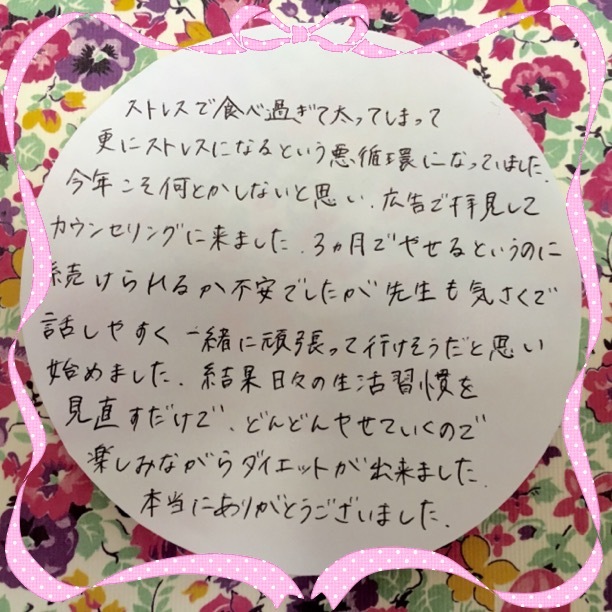 ストレスで食べ過ぎて太ってしまって
更にストレスになるという悪循環になっていました。
今年こそ何とかしないと思い、広告で拝見して
カウンセリングに来ました。3ヵ月でやせるというのに
続けられるか不安でしたが先生も気さくで
話しやすく一緒に頑張って行けそうだと思い
始めました。結果日々の生活習慣を
見直すだけで、どんどんやせていくので
楽しみながらダイエットが出来ました。
本当にありがとうございました。